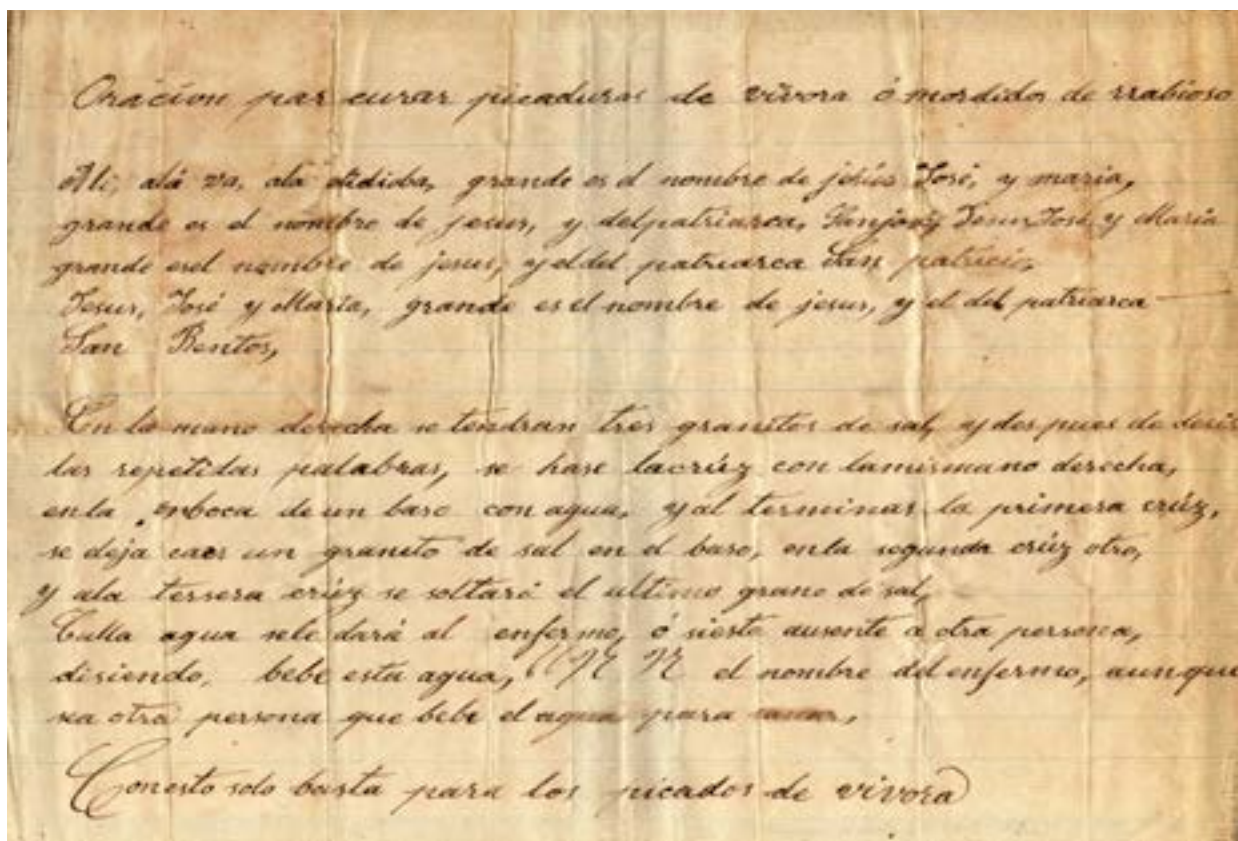 Oracion par curar picaduras de vivora ó mordidos de rrabioso
alá va, alá grande es el nombre de jesús José, y maria,
grande es el nombre de jesus, y delpatriarca, José, y Maria
grande esel nombre de jesus, y eldel patriarca San patricio,
Jesus, José y Maria, grande es el nombre de jesus, y el del patriarca
San Bentos,
En la mano derecha se tendran tres granitos de sal, y des pues de desir
las repetidas palabras, se hase lacrúz con lamismano derecha,
enla enboca de un baso con agua, y al terminar la primera crúz,
se deja caer un granito de sal en el baso, enla segunda crúz otro,
y ala tersera crúz se soltará el ultimo grano de sal,
agua sele dará al enfermo, ó siesta ausente a otra persona,
disiendo, bebe esta agua, el nombre del enfermo, aunque
sea otra persona que bebe el agua para
Conesto solo basta para los picados de vivora